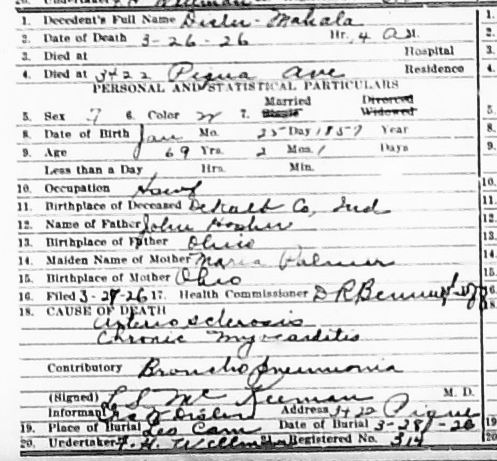 1. Decedent's Full Name Disler - Mahala
2. Date of Death 3-26-26 Hr. 4 A M.
3. Died at Hospital
4. Died at 3422 Piqua Ave Residence
PERSONAL AND STATISTICAL PARTICULARS
Married Divorced
5. Sex F 6. Color W 7. Single Widowed
8. Date of Birth Jan Mo. 25 Day 1857 Year
9. Age 69 Yrs. 2 Mos. 1 Days
Less than a Day Hrs. Min.
10. Occupation Hswf
11. Birthplace of Deceased DeKalb Co, Ind
12. Name of Father John
13. Birthplace of Father Ohio
14. Maiden Name of Mother Maria Palmer
15. Birthplace of Mother Ohio
16. Filed 3-27-26 17. Health Commissioner D R Benninghoff
18. CAUSE OF DEATH
Arterio sclerosis
Chronic Myocarditis
Contributory Broncho pneumonia
(Signed) L S Mc Keeman M. D.
Informant Disler Address 3422 Piqua
19. Place of Burial Date of Burial 3-28-26
20. Undertaker F. H. Wellman 21. Registered No. 314